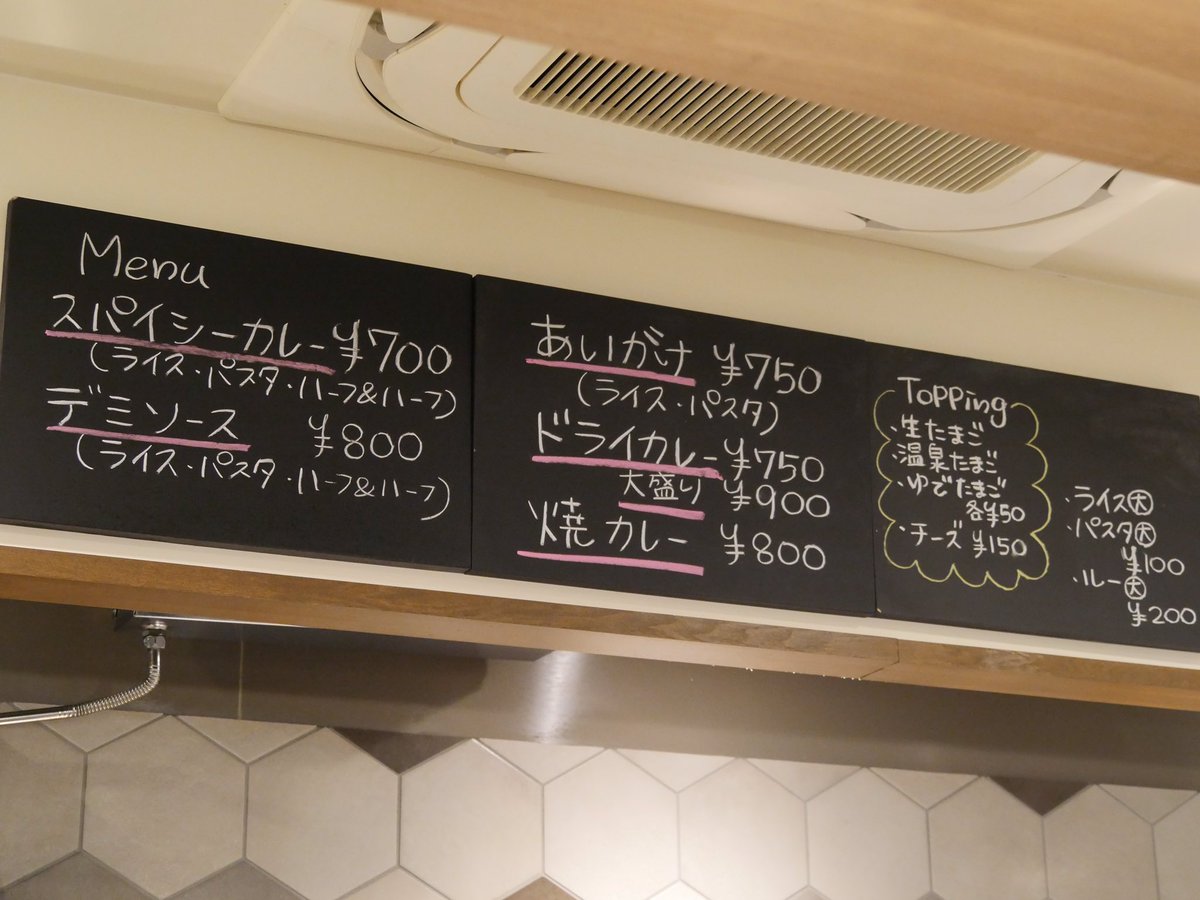 Menu
スパイシーカレー ¥700
(ライス・パスタ・ハーフ&ハーフ)
デミソース ¥800
(ライス・パスタ・ハーフ&ハーフ)
あいがけ ¥750
(ライス・パスタ)
ドライカレー ¥750
大盛り ¥900
焼カレー ¥800
Topping
・生たまご
・温泉たまご
・ゆでたまご
各¥50
・チーズ ¥150
・ライス大
・パスタ大
¥100
・ルー大
¥200